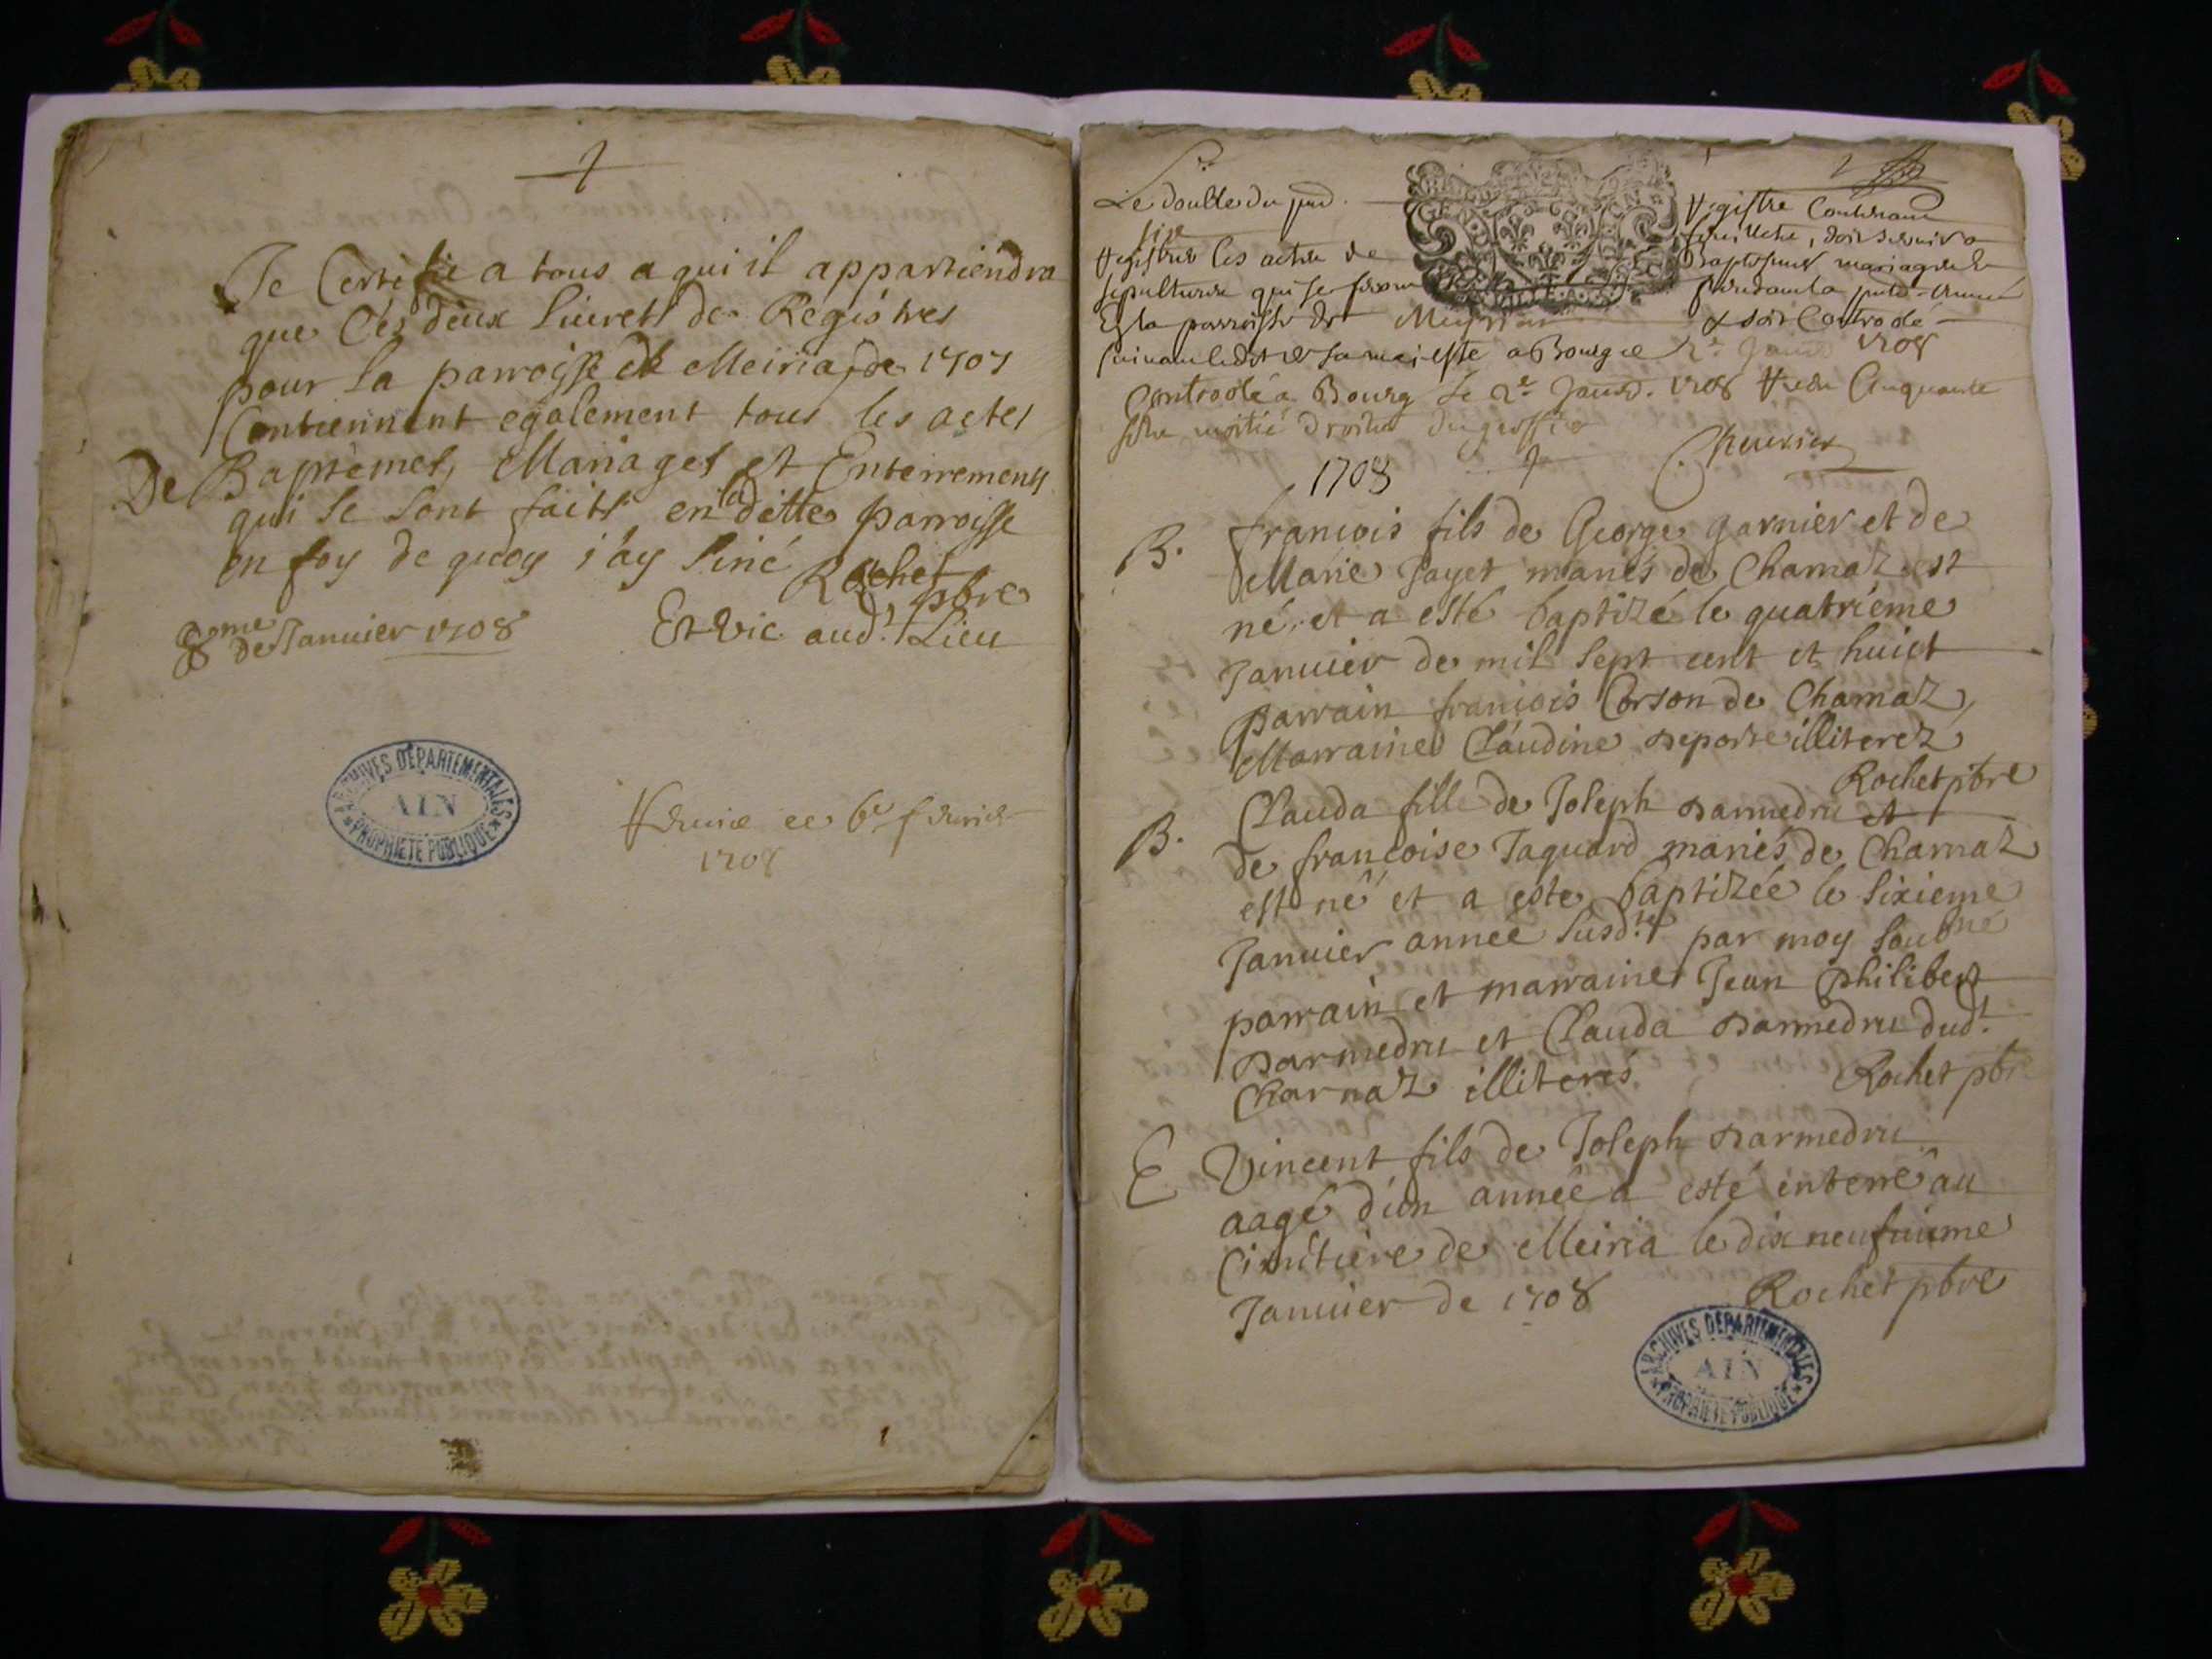 Je Certifie a tous a qui il appartiendra
que Cés deux Liurets de Registres
pour la parroisse de Meiria, de 1707
Contiennent egalement tous les actes
De Baptèmes, Mariages et Enterrements
qui se sont faits en la ditte parroisse
en foy de quoy j'ay siné Rochet pbre
8ome de Januier 1708 Et vic. aud.t Lieu
ARCHIVES DÉPARTEMENTALES
AIN
PROPRIÉTÉ PUBLIQUE
ce 6e feurier
1708
Le double du pnt. Registre Contenant
six feuillets, doit seruir a
Registrer les actes de Baptesmes mariages &
sepultures qui se feront pendant la pnte année
En la parroisse de Meyria & soit Controolé
suiuant ledit de sa majesté a Bourg ce 2e Januier 1708
Controolé a Bourg le 2e Januier 1708 Reçu Cinquante
sols moitié droits du greffier
Cheurier
1708
B. francois fils de George garnier et de
Marie Jayet mariés de Charnaz est
né et a esté baptizé le quatriéme
Januier de mil sept cent et huict
parrain francois Corson de Charnaz,
Marraine Claudine Deporte illiterez
Rochet pbre
B. Clauda fille de Joseph Darmedru et
de francoise Jaquard mariés de Charnaz
est né et a esté baptizée le sixieme
Januier année susd.te par moy soubné
parrain et marraine Jean Philibert
Darmedru et Clauda Darmedru dud.t
Charnaz illiterés Rochet pbre
E Vincent fils de Joseph Darmedru
aagé d'un année a esté interré au
Cimitiere de Meiria le dix neufuieme
Januier de 1708 Rochet pbre
ARCHIVES DÉPARTEMENTALES
AIN
PROPRIÉTÉ PUBLIQUE